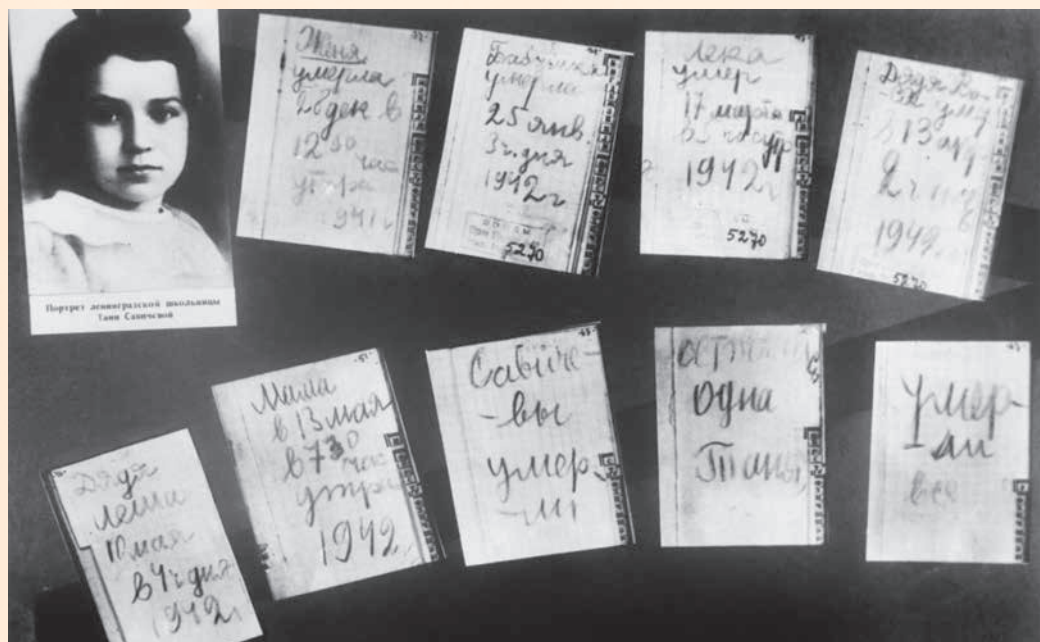 Портрет ленинградской школьницы
Тани Савичевой
Женя
умерла
28 дек в
12 30
час
утра
1941 г
Бабушка
умерла
25 янв.
3 ч. дня
1942 г
5270
Лека
умер
17 марта
в 5 час утр
1942 г
5270
Дядя Ва-
ся умер
в 13 апр
2 ч ноч
1942
5270
Дядя
Леша
10 мая
в 4 ч дня
1942 г
Мама
в 13 мая
в 7 30 час
утра
1942
Савиче-
-вы
умер-
-ли
одна
Таня
умер-
-ли
все